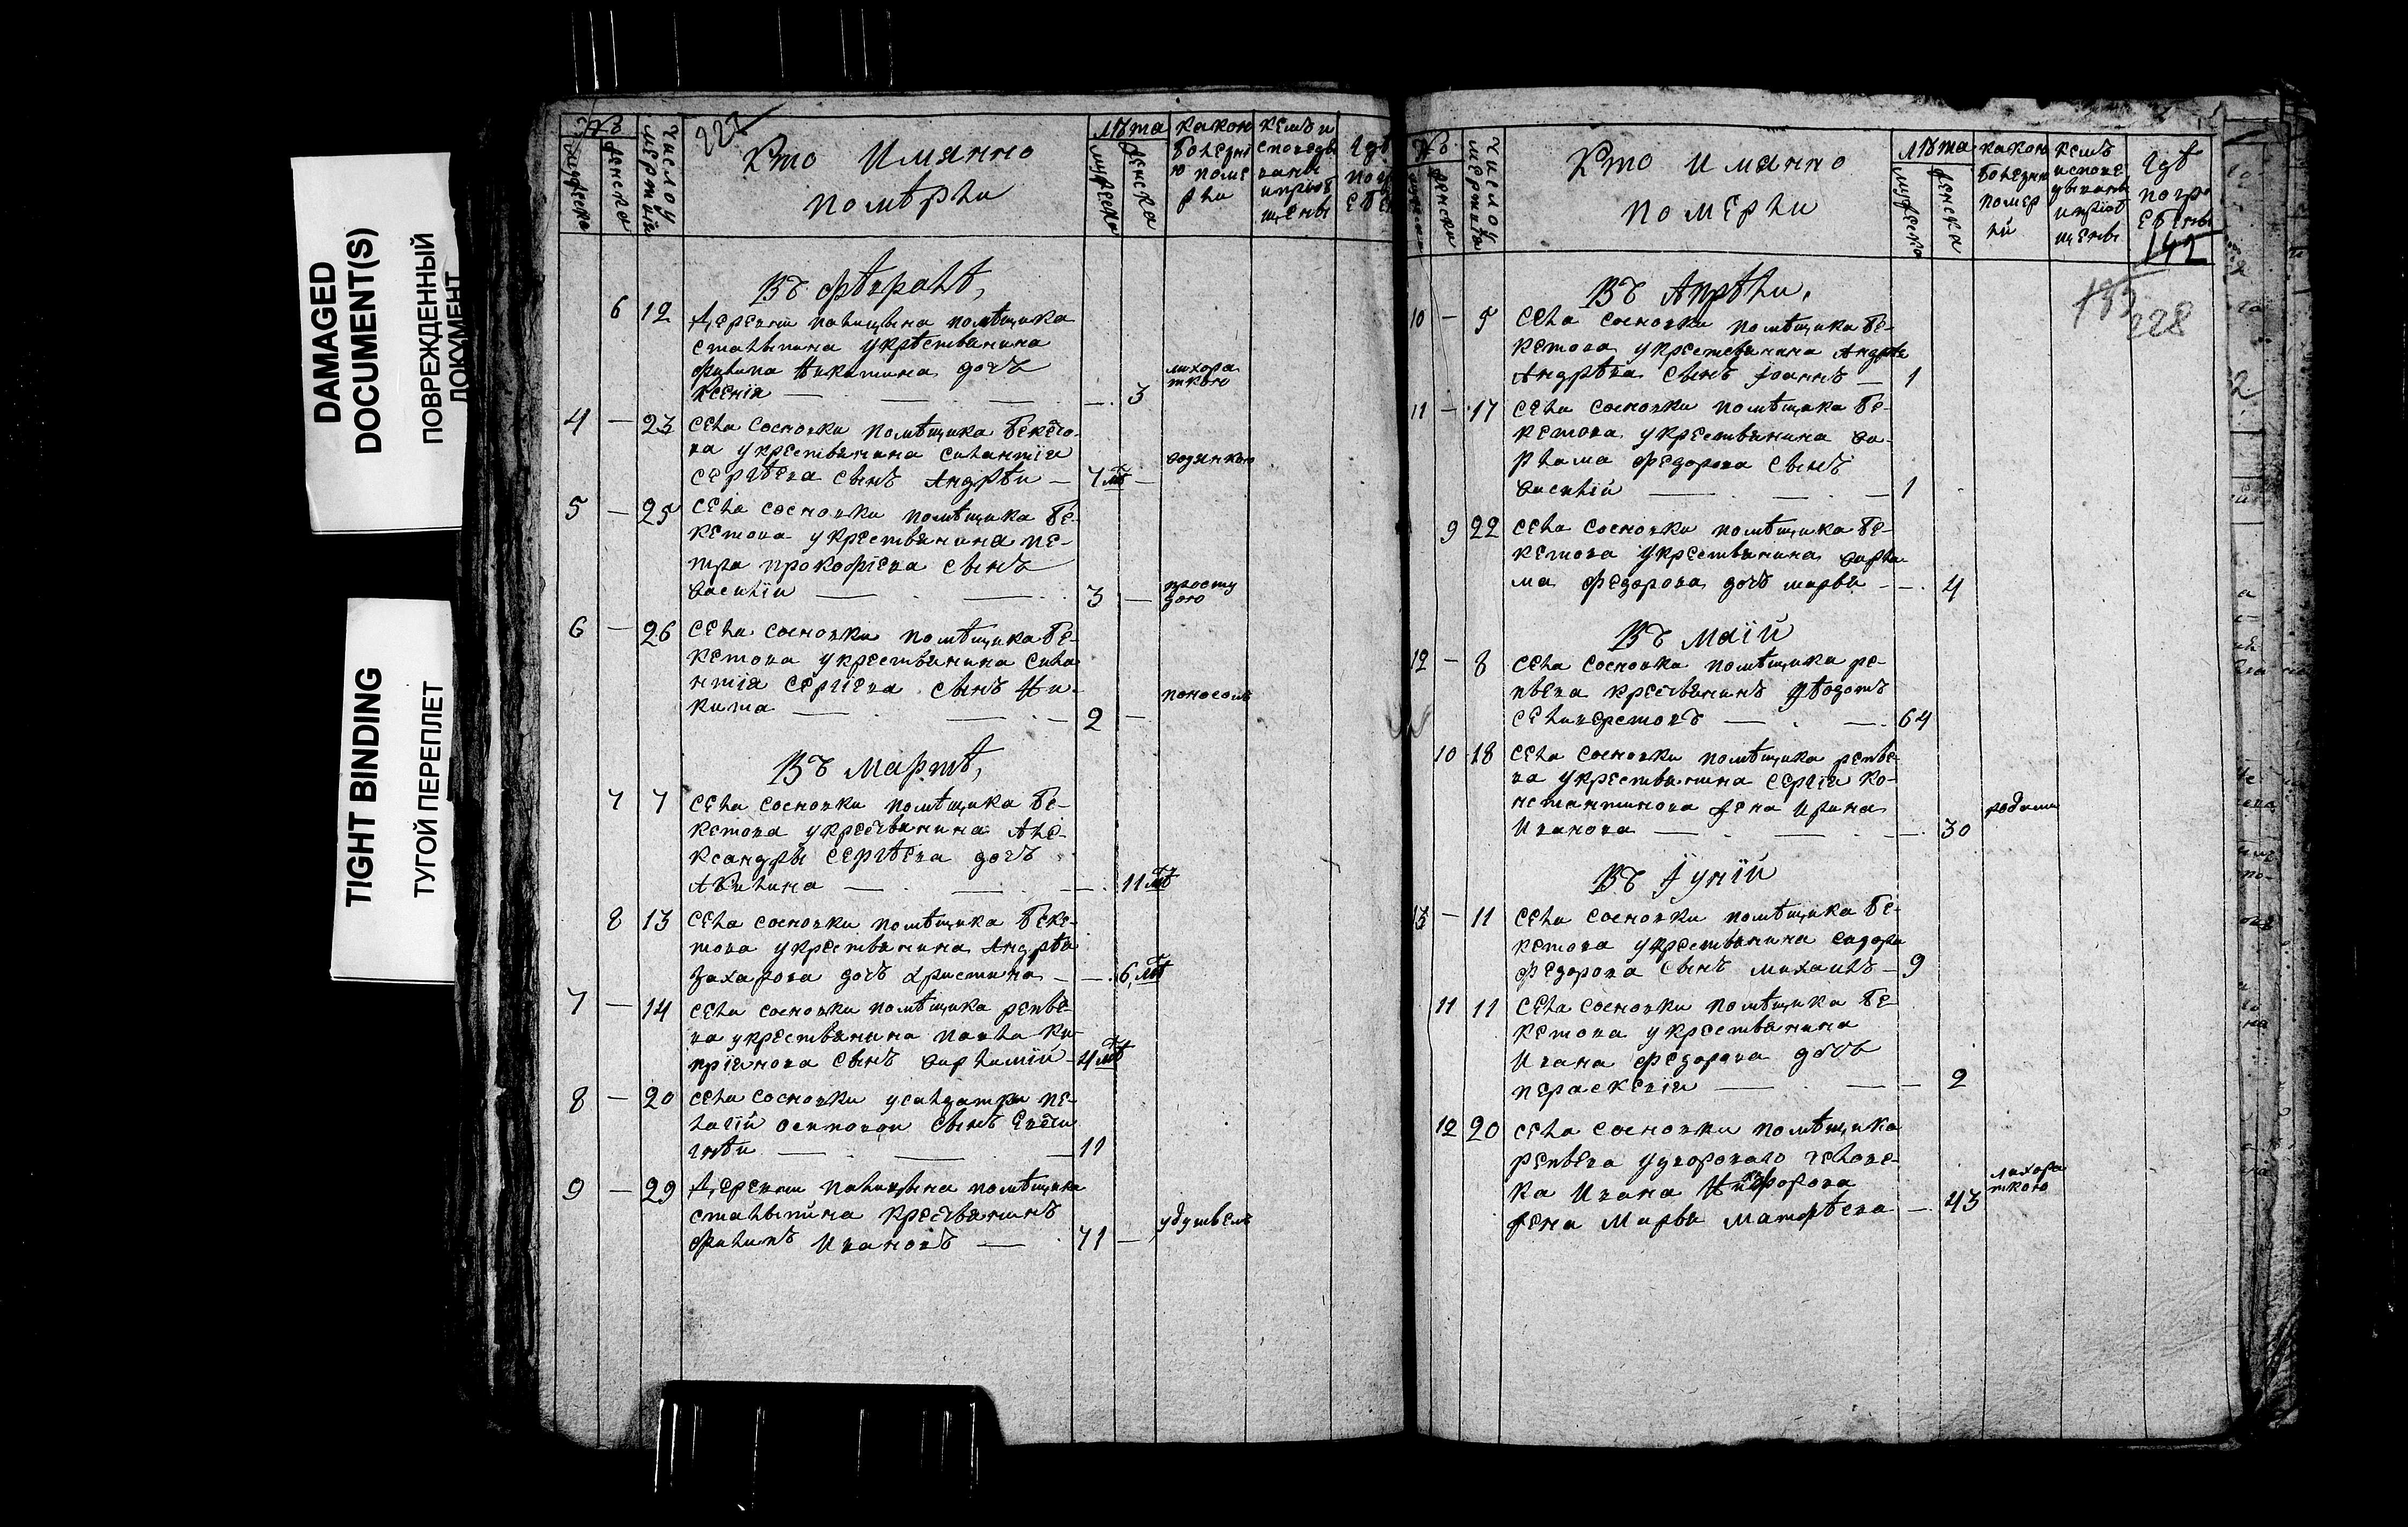 DAMAGED
DOCUMENT(S)
ПОВРЕЖДЕННЫЙ
ДОКУМЕНТ
TIGHT BINDING
ТУГОЙ ПЕРЕПЛЕТ
227
№
мужеска
женска
Число у
мертвiй
Кто Имянно
помѣрли
лѣта
мужеска
женска
какою
болезнi
ю поме
рли
кемъ и
споведы
ваны
и прiоб
щены
Въ февралѣ,
6 12 Деревни палицына помѣщика
сталыпина у крѣстьянина
филипа Никитина дочь
Ксенiя — 3 лихора
ткою
4 — 23 села сосновки помѣщика Бекето-
ва у крестьянина силантiя
сергѣева сынъ Андрѣи — 7 мѣ — родимкою
5 — 25 села сосновки помѣщика Бе-
кетова у крестьянина пе-
тра прокофiева сынъ
Василiи — 3 — просту
дою
6 — 26 села сосновки помѣщика Бе-
кетова у крестьянина сила-
нтiя сергiева сынъ Ни-
кита — 2 — поносомъ
Въ мартѣ,
7 7 села сосновки помѣщика Бе-
кетова у крестьянина Але-
ксандры сергѣева дочь
Акилина — 11 мѣ
8 13 села сосновки помѣщика Беке-
това у крестьянина Андрѣя
захарова дочь христина — 6 мѣ
7 — 14 села сосновки помѣщика репье-
ва у крестьянина павла ки-
прiянова сынъ варламiй — 4 мѣ
8 — 20 села сосновки у салдатки пе-
лагiй осиповои сынъ
— 11
9 — 29 Деревни палицына помѣщика
сталыпина крестьянинъ
филипъ Ивановъ — 71 — удушьемъ
№
женска
Число у
мертвiй
Кто имянно
померли
лѣта
мужеска
женска
какою
болезни
помер
лй
кемъ
испове
дываны
и прiоб
щены
Гдѣ
погре
бены
142
183
228
Въ Апрѣли,
10 — 5 села сосновки помѣщика Бе-
кетова у крестьянина Андрѣя
Андрѣева сынъ Iоаннъ — 1
11 — 17 села сосновки помѣщика Бе-
кетова у крестьянина ва-
рлама федорова сынъ
василiй — 1
9 22 села сосновки помѣщика Бе-
кетова у крестьянина варла
ма федорова дочь марья — 4
Въ маiй
12 — 8 села сосновки помѣщика ре-
пьева крестьянинъ Ѳеодотъ
селиверстовъ — 64
10 18 села сосновки помѣщика репье-
ва у крестьянина сергiя ко-
нстантинова жена Ирина
Иванова — 30 родами
Въ Iунiй
13 — 11 села сосновки помѣщика Бе-
кетова у крестьянина сидора
федорова сынъ михаилъ — 9
11 11 села сосновки помѣщика Бе-
кетова у крестьянина
Ивана федорова дочь
пераскевiя — 2
12 20 села сосновки помѣщика
репьева у двороваго челове-
ка Ивана Никифорова
жена Марья матфѣева — 43 лихора
ткою